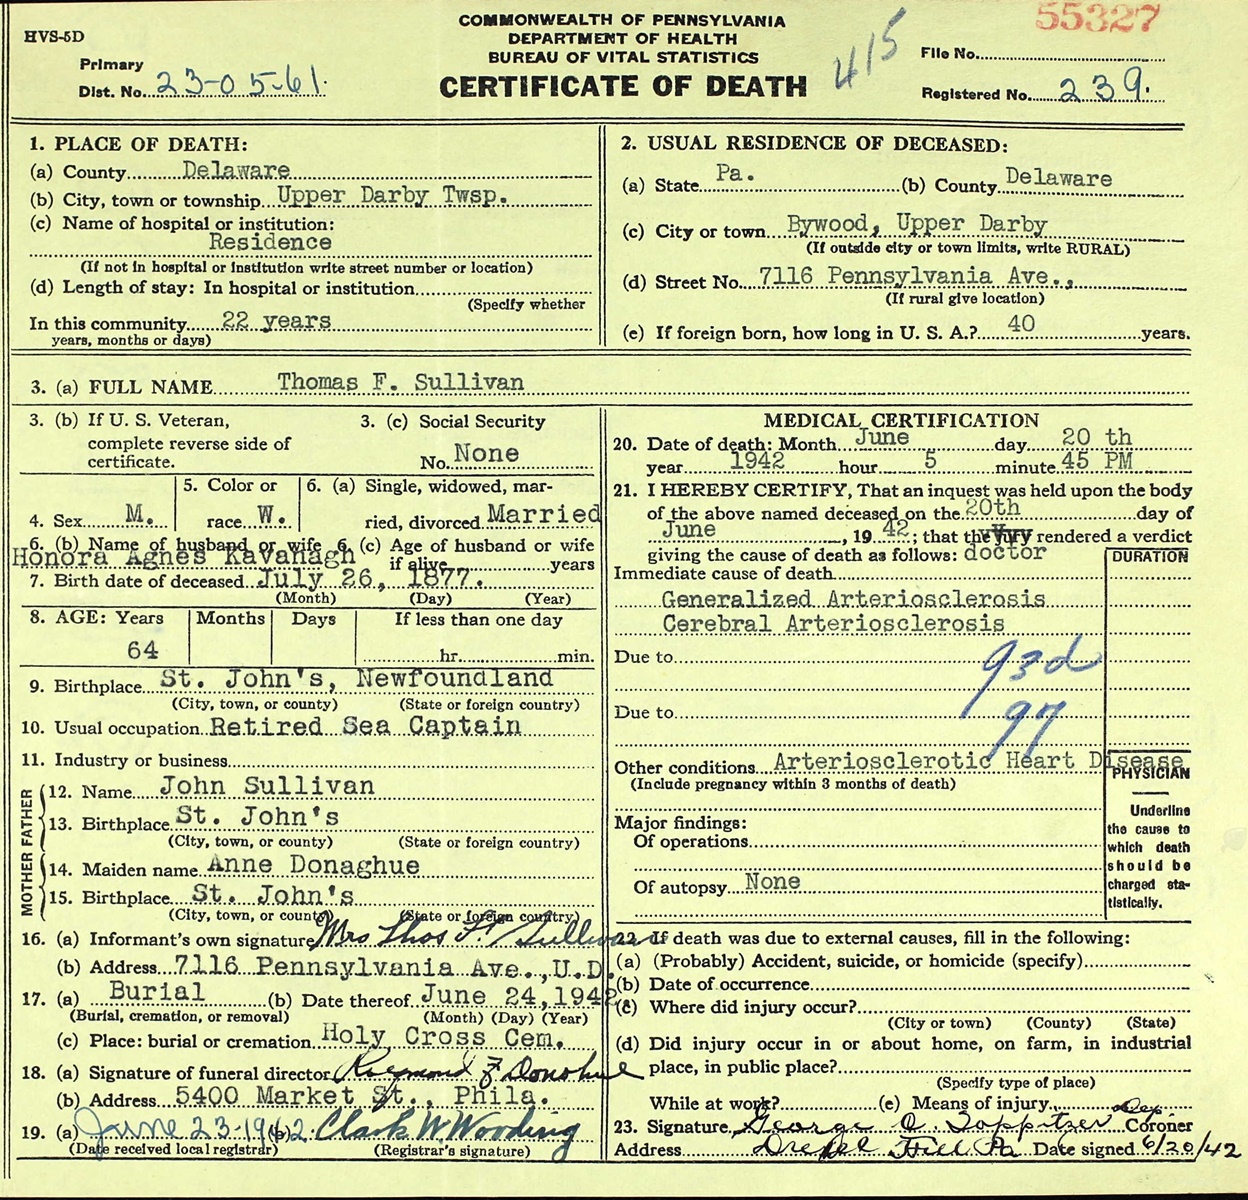 55327
COMMONWEALTH OF PENNSYLVANIA
DEPARTMENT OF HEALTH
BUREAU OF VITAL STATISTICS
CERTIFICATE OF DEATH
415
HVS-5D
Primary
Dist. No. 23-05-61.
File No.
Registered No. 239.
1. PLACE OF DEATH:
(a) County Delaware
(b) City, town or township Upper Darby Twsp.
(c) Name of hospital or institution:
Residence
(If not in hospital or institution write street number or location)
(d) Length of stay: In hospital or institution
(Specify whether
In this community 22 years
years, months or days)
2. USUAL RESIDENCE OF DECEASED:
(a) State Pa. (b) County Delaware
(c) City or town Bywood, Upper Darby
(If outside city or town limits, write RURAL)
(d) Street No. 7116 Pennsylvania Ave.,
(If rural give location)
(e) If foreign born, how long in U. S. A.? 40 years.
3. (a) FULL NAME Thomas F. Sullivan
3. (b) If U. S. Veteran,
complete reverse side of
certificate.
3. (c) Social Security
No. None
4. Sex M.
5. Color or
race W.
6. (a) Single, widowed, mar-
ried, divorced Married
6. (b) Name of husband or wife
Honora Agnes Kavanagh
6. (c) Age of husband or wife
if alive years
7. Birth date of deceased July 26, 1877.
(Month) (Day) (Year)
8. AGE: Years Months Days If less than one day
64 hr. min.
9. Birthplace St. John's, Newfoundland
(City, town, or county) (State or foreign country)
10. Usual occupation Retired Sea Captain
11. Industry or business
FATHER
12. Name John Sullivan
13. Birthplace St. John's
(City, town, or county) (State or foreign country)
MOTHER
14. Maiden name Anne Donaghue
15. Birthplace St. John's
(City, town, or county) (State or foreign country)
16. (a) Informant's own signature Mrs Thos F. Sullivan
(b) Address 7116 Pennsylvania Ave., U.D.
17. (a) Burial (b) Date thereof June 24, 1942
(Burial, cremation, or removal) (Month) (Day) (Year)
(c) Place: burial or cremation Holy Cross Cem.
18. (a) Signature of funeral director Raymond F Donohue
(b) Address 5400 Market St., Phila.
19. (a) June 23-1942 (b) Clark W Wooding
(Date received local registrar) (Registrar's signature)
MEDICAL CERTIFICATION
20. Date of death: Month June day 20 th
year 1942 hour 5 minute 45 PM
21. I HEREBY CERTIFY, That an inquest was held upon the body
of the above named deceased on the 20th day of
June, 1942; that the jury rendered a verdict
giving the cause of death as follows: doctor
DURATION
Immediate cause of death
Generalized Arteriosclerosis
Cerebral Arteriosclerosis
Due to 93d
Due to 97
Other conditions Arteriosclerotic Heart Disease
(Include pregnancy within 3 months of death)
Major findings:
Of operations
Of autopsy None
PHYSICIAN
Underline
the cause to
which death
should be
charged sta-
tistically.
22. If death was due to external causes, fill in the following:
(a) (Probably) Accident, suicide, or homicide (specify)
(b) Date of occurrence
(c) Where did injury occur?
(City or town) (County) (State)
(d) Did injury occur in or about home, on farm, in industrial
place, in public place?
(Specify type of place)
While at work? (e) Means of injury
23. Signature George C. Dep. Coroner
Address Drexel Hill Pa Date signed 6/20/42